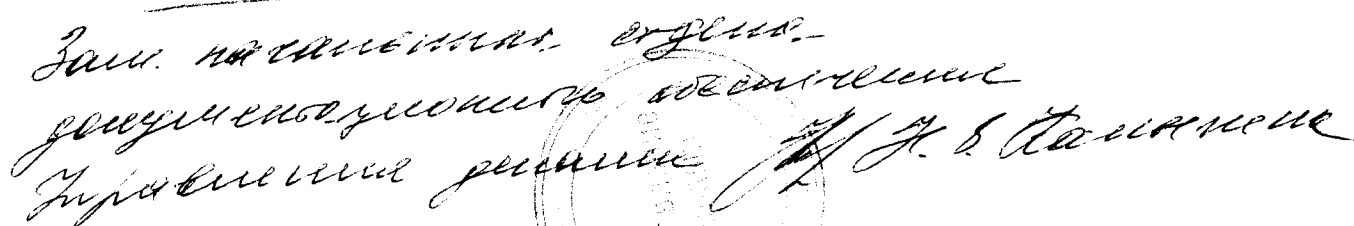 Зам. начальника отдела
документационного обеспечения
Управления делами Н. В.